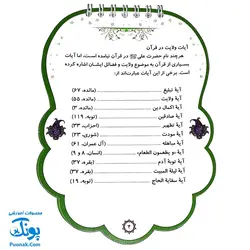 آیات ولایت در قرآن
هرچند نام حضرت علی در قرآن نیامده است، اما آیات
بسیاری از قرآن به موضوع ولایت و فضائل ایشان اشاره کرده
است. برخی از این آیات عبارت‌اند از:
آیهٔ تبلیغ (مائده، ۶۷)
آیهٔ ولایت (مائده، ۵۵)
آیهٔ اکمال دین (مائده، ۳)
آیهٔ صادقین (توبه، ۱۱۹)
آیهٔ تطهیر (احزاب، ۳۳)
آیهٔ مودت (شوری، ۲۳)
آیهٔ مباهله (آل عمران، ۶۱)
آیهٔ و یطعمون الطعام (انسان، ۸ و ۹)
آیهٔ توبهٔ آدم (بقره، ۳۷)
آیهٔ لیلة المبیت (بقره،
آیهٔ سقایة الحاج (توبه، ۱۹)
محصولات آموزشی
پونک
Poonak.Com